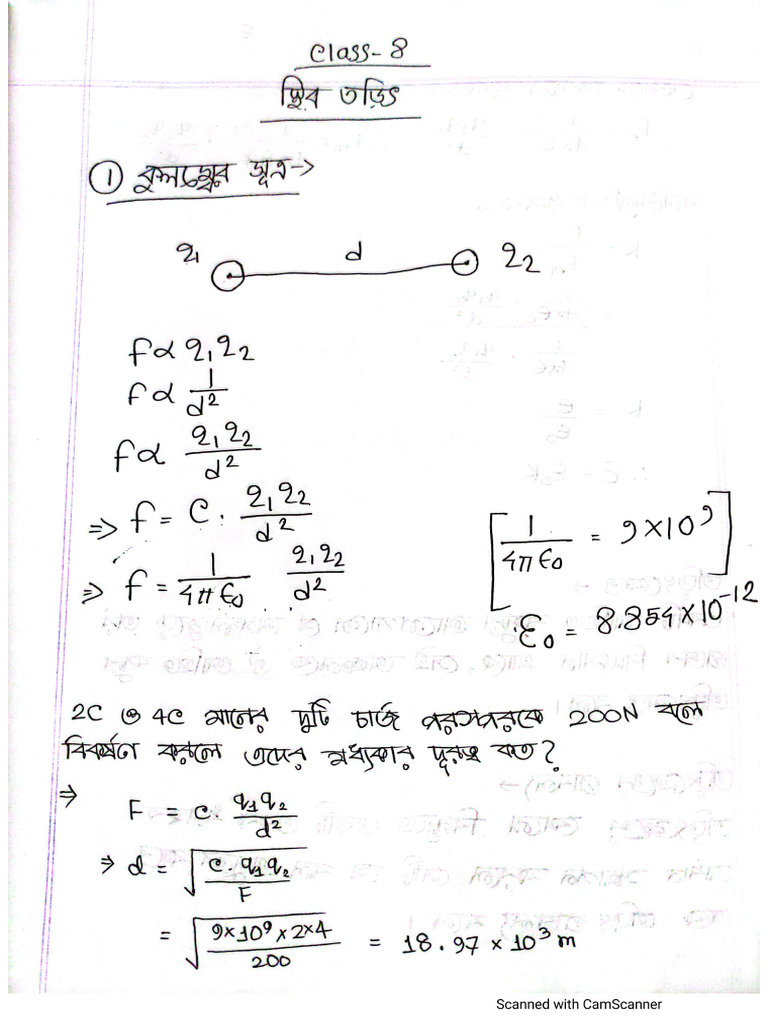 Class-8
স্থির তড়িৎ
① কুলম্বের সূত্র→
q₁ d q₂
f∝ q₁q₂
f∝ 1/d²
f∝ q₁q₂/d²
⇒ f = C · q₁q₂/d²
⇒ f = 1/4πϵ₀ q₁q₂/d²
[1/4πϵ₀ = 9×10⁹]
ε₀ = 8.854×10⁻¹²
2C ও 4C মানের দুটি চার্জ পরস্পরকে 200N বলে
বিকর্ষণ করলে তাদের মধ্যকার দূরত্ব কত?
⇒ F = c. q₁q₂/d²
⇒ d = √(c q₁ q₂/F)
= √(9×10⁹×2×4/200) = 18.97 × 10³ m
Scanned with CamScanner